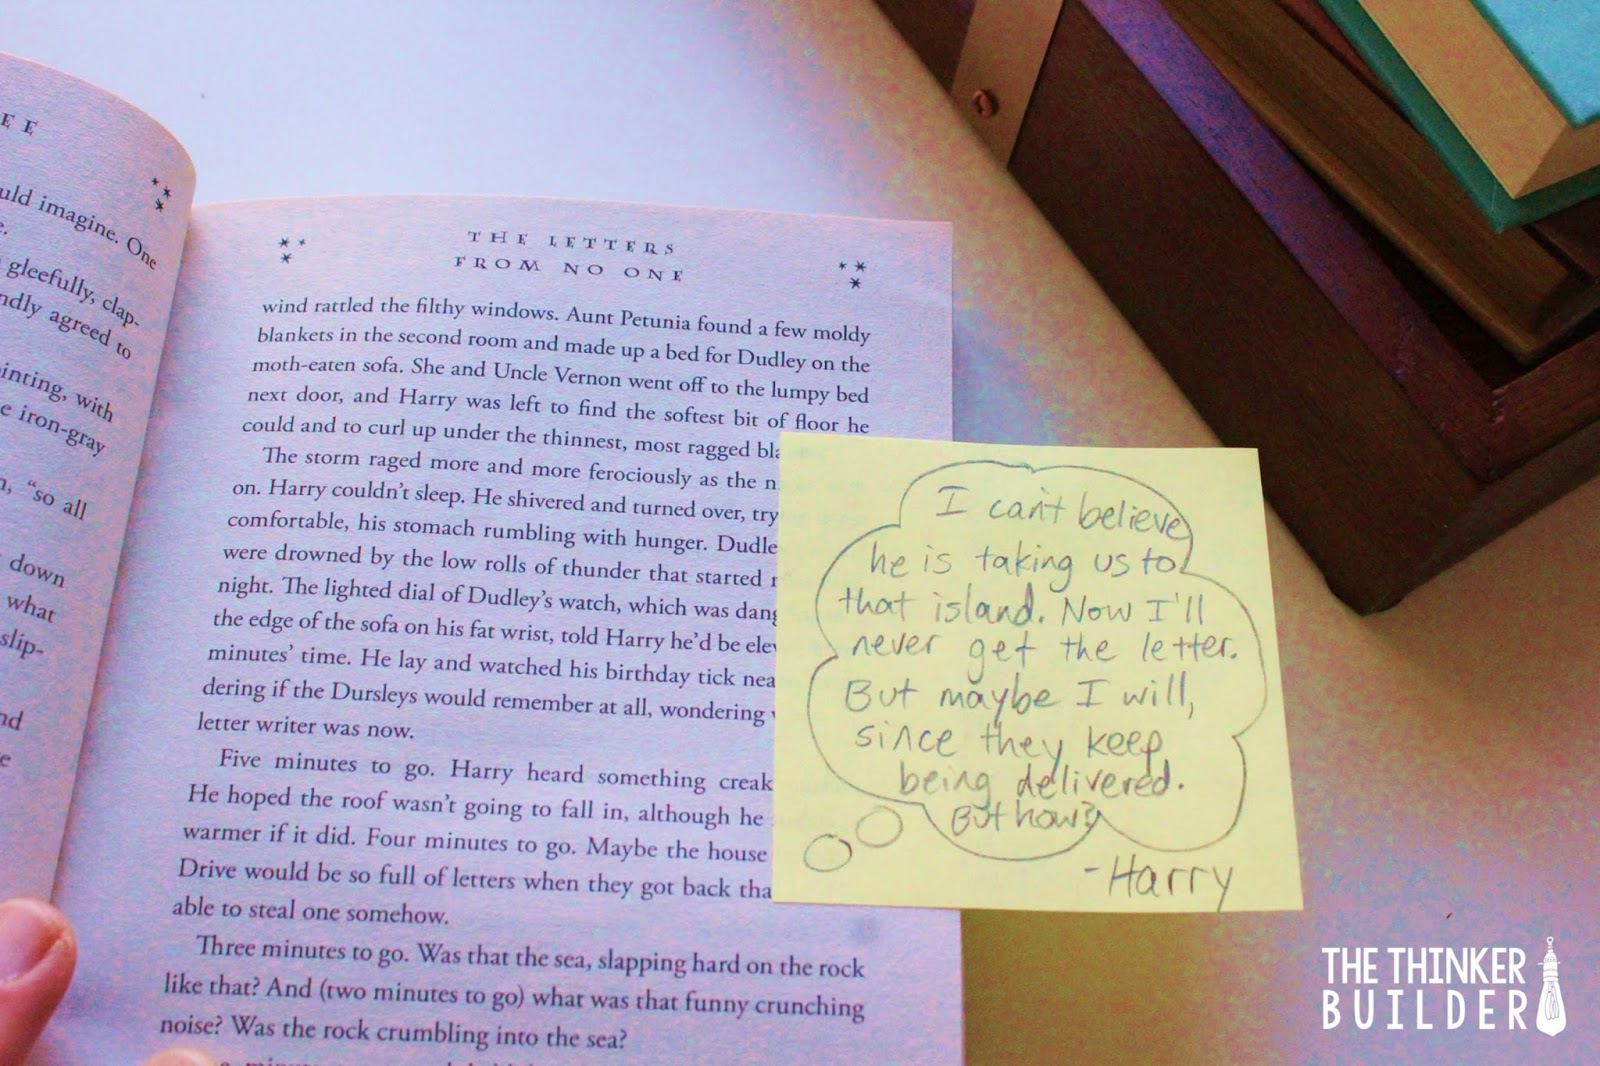 E E
uld imagine. One
e.
gleefully, clap-
ndly agreed to
inting, with
e iron-gray
n, “so all
down
what
slip-
nd
e
THE LETTERS
FROM NO ONE
wind rattled the filthy windows. Aunt Petunia found a few moldy
blankets in the second room and made up a bed for Dudley on the
moth-eaten sofa. She and Uncle Vernon went off to the lumpy bed
next door, and Harry was left to find the softest bit of floor he
could and to curl up under the thinnest, most ragged bla
The storm raged more and more ferociously as the n
on. Harry couldn’t sleep. He shivered and turned over, try
comfortable, his stomach rumbling with hunger. Dudle
were drowned by the low rolls of thunder that started
night. The lighted dial of Dudley’s watch, which was dang
the edge of the sofa on his fat wrist, told Harry he’d be ele
minutes’ time. He lay and watched his birthday tick nea
dering if the Dursleys would remember at all, wondering
letter writer was now.
Five minutes to go. Harry heard something creak
He hoped the roof wasn’t going to fall in, although he
warmer if it did. Four minutes to go. Maybe the house
Drive would be so full of letters when they got back tha
able to steal one somehow.
Three minutes to go. Was that the sea, slapping hard on the rock
like that? And (two minutes to go) what was that funny crunching
noise? Was the rock crumbling into the sea?
I can't believe
he is taking us to
that island. Now I'll
never get the letter.
But maybe I will,
since they keep
being delivered.
But how?
-Harry
THE THINKER
BUILDER